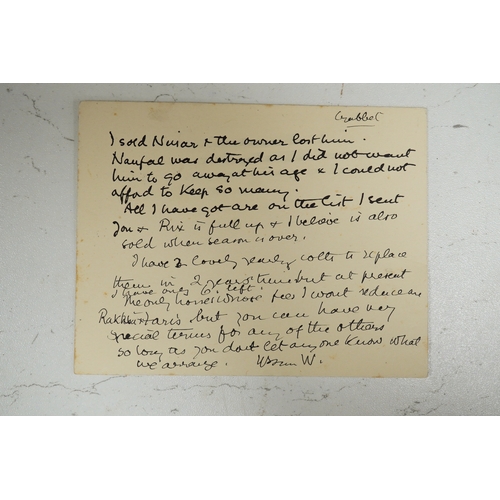 Crabbet
I sold Nisar & the owner lost him.
Naufal was destroyed as I did not want
him to go away at his age & I could not
afford to keep so many.
All I have got are on the list I sent
you & Rix is full up & I believe is also
sold when season is over.
I have 2 lovely yearly colts to replace
them in 2 years time but at present
I have only 6 left.
The only horses whose fees I wont reduce are
but you can have very
special terms for any of the others
so long as you dont let anyone know what
we arrange. W.